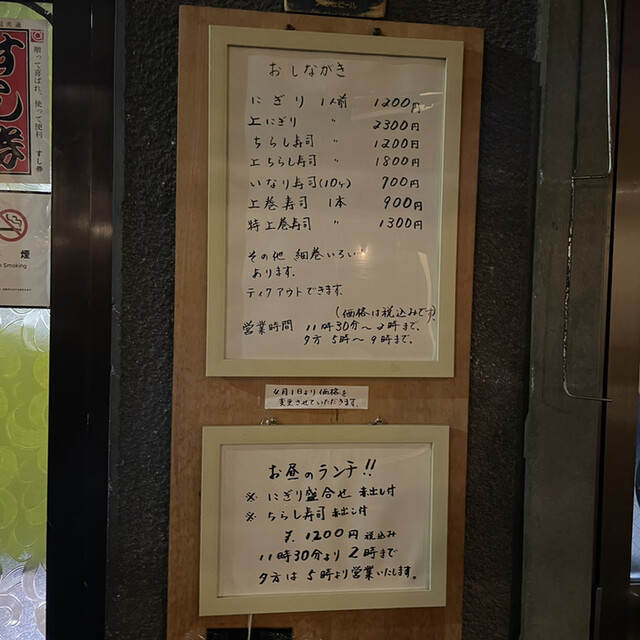 すし券
贈って喜ばれ、使って便利 すし券
煙
Smoking
おしながき
にぎり 1人前 1200円
上にぎり 〃 2300円
ちらし寿司 〃 1200円
上ちらし寿司 〃 1800円
いなり寿司(10ヶ) 700円
上巻寿司 1本 900円
特上巻寿司 〃 1300円
その他 細巻いろいろ
あります。
ティクアウトできます。
(価格は税込みです)
営業時間 11時30分〜2時まで、
夕方 5時〜9時まで、
4月1日より価格を
変更させていただきます。
お昼のランチ!!
※ にぎり盛合せ 赤出し付
※ ちらし寿司 赤出し付
¥. 1200円 税込み
11時30分より 2時まで
夕方は 5時より営業いたします。